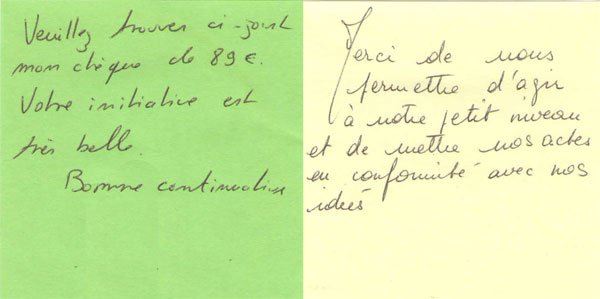 Veuillez trouver ci-joint
mon chèque de 89€.
Votre initiative est
très belle.
Bonne continuation
Merci de nous
permettre d'agir
à notre petit niveau
et de mettre nos actes
en conformité avec nos
idées